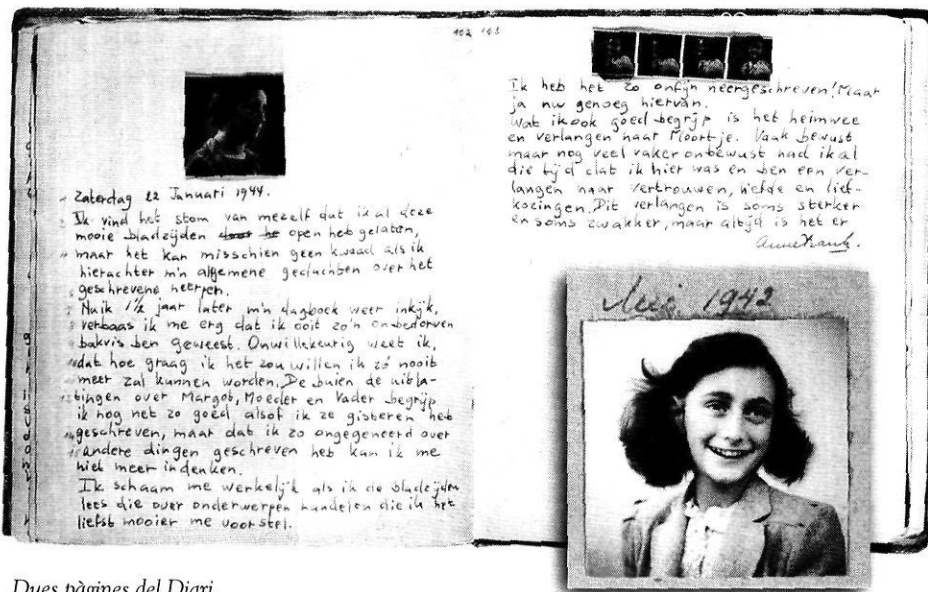 102 103
Zaterdag 22 Januari 1944.
Ik vind het stom van mezelf dat ik al deze
mooie bladzijden open heb gelaten,
maar het kan misschien geen kwaad als ik
hierachter m'n algemene gedachten over het
geschrevene neerpen.
Nu ik 1½ jaar later m'n dagboek weer inkijk,
verbaas ik me erg dat ik ooit zo'n onbedorven
bakvis ben geweest. Onwillekeurig weet ik,
dat hoe graag ik het zou willen ik zó nooit
meer zal kunnen worden. De buien de uitla-
tingen over Margot, Moeder en Vader begrijp
ik nog net zo goed alsof ik ze gisteren heb
geschreven, maar dat ik zo ongegeneerd over
andere dingen geschreven heb kan ik me
niet meer indenken.
Ik schaam me werkelijk als ik de bladzijden
lees die over onderwerpen handelen die ik het
liefst mooier me voorstel.
Ik heb het zo onfijn neergeschreven! Maar
ja nu genoeg hiervan.
Wat ik ook goed begrijp is het heimwee
en verlangen naar Moortje. Vaak bewust
maar nog veel vaker onbewust had ik al
die tijd dat ik hier was en ben een ver-
langen naar vertrouwen, liefde en lief-
kozingen. Dit verlangen is soms sterker
en soms zwakker, maar altijd is het er
Anne Frank.
1942
Dues pàgines del Diari